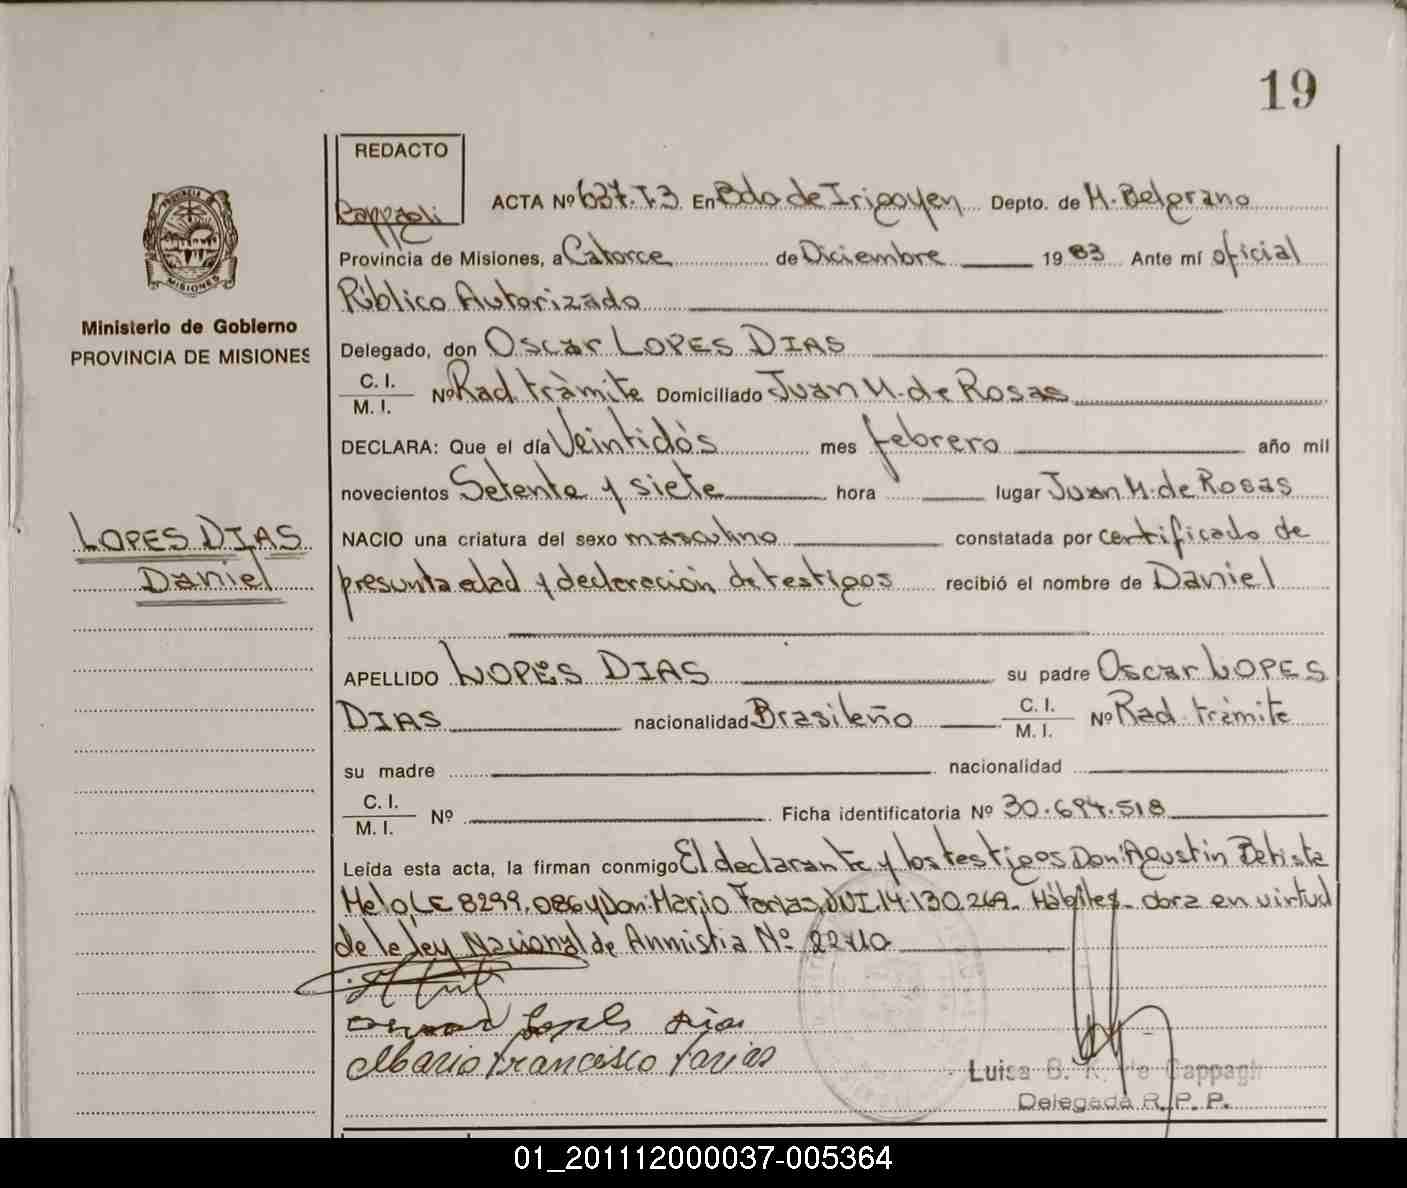 19
REDACTO
ACTA Nº 637.T3 En Bdo de Irigoyen Depto. de M. Belgrano
Provincia de Misiones, a Catorce de Diciembre 1983 Ante mí oficial
Público Autorizado
PROVINCIA
MISIONES
Ministerio de Gobierno
PROVINCIA DE MISIONES
Delegado, don Oscar LOPES DIAS
C. I.
M. I. Nº Rad. tràmite Domiciliado Juan M. de Rosas
DECLARA: Que el día Veintidós mes febrero año mil
novecientos Setenta y siete hora lugar Juan M. de Rosas
LOPES DIAS
Daniel
NACIO una criatura del sexo masculino constatada por certificado de
presunta edad y declaración de testigos recibió el nombre de Daniel
APELLIDO LOPES DIAS su padre Oscar LOPES
DIAS nacionalidad Brasileño C. I. M. I. Nº Rad. tràmite
su madre nacionalidad
C. I.
M. I. Nº Ficha identificatoria Nº 30.694.518
Leída esta acta, la firman conmigo El declarante y los testigos Don: Agustin Betista
Melo, LE 8299.086 y Don: Mario Farias, DNI.14.130.269. Hábiles. obra en virtud
de la ley Nacional de Anmistia Nº
Mario Francisco Farias
Luisa B. K. de Cappagli
Delegada R. P. P.
01_201112000037-005364